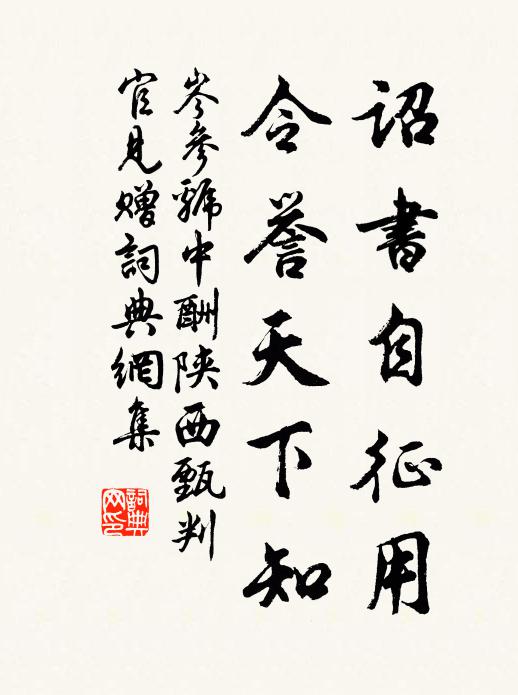 詔書自征用
令誉天下知
岑參虢中酬陕西甄判
官見贈詞典網集
詞典
网印